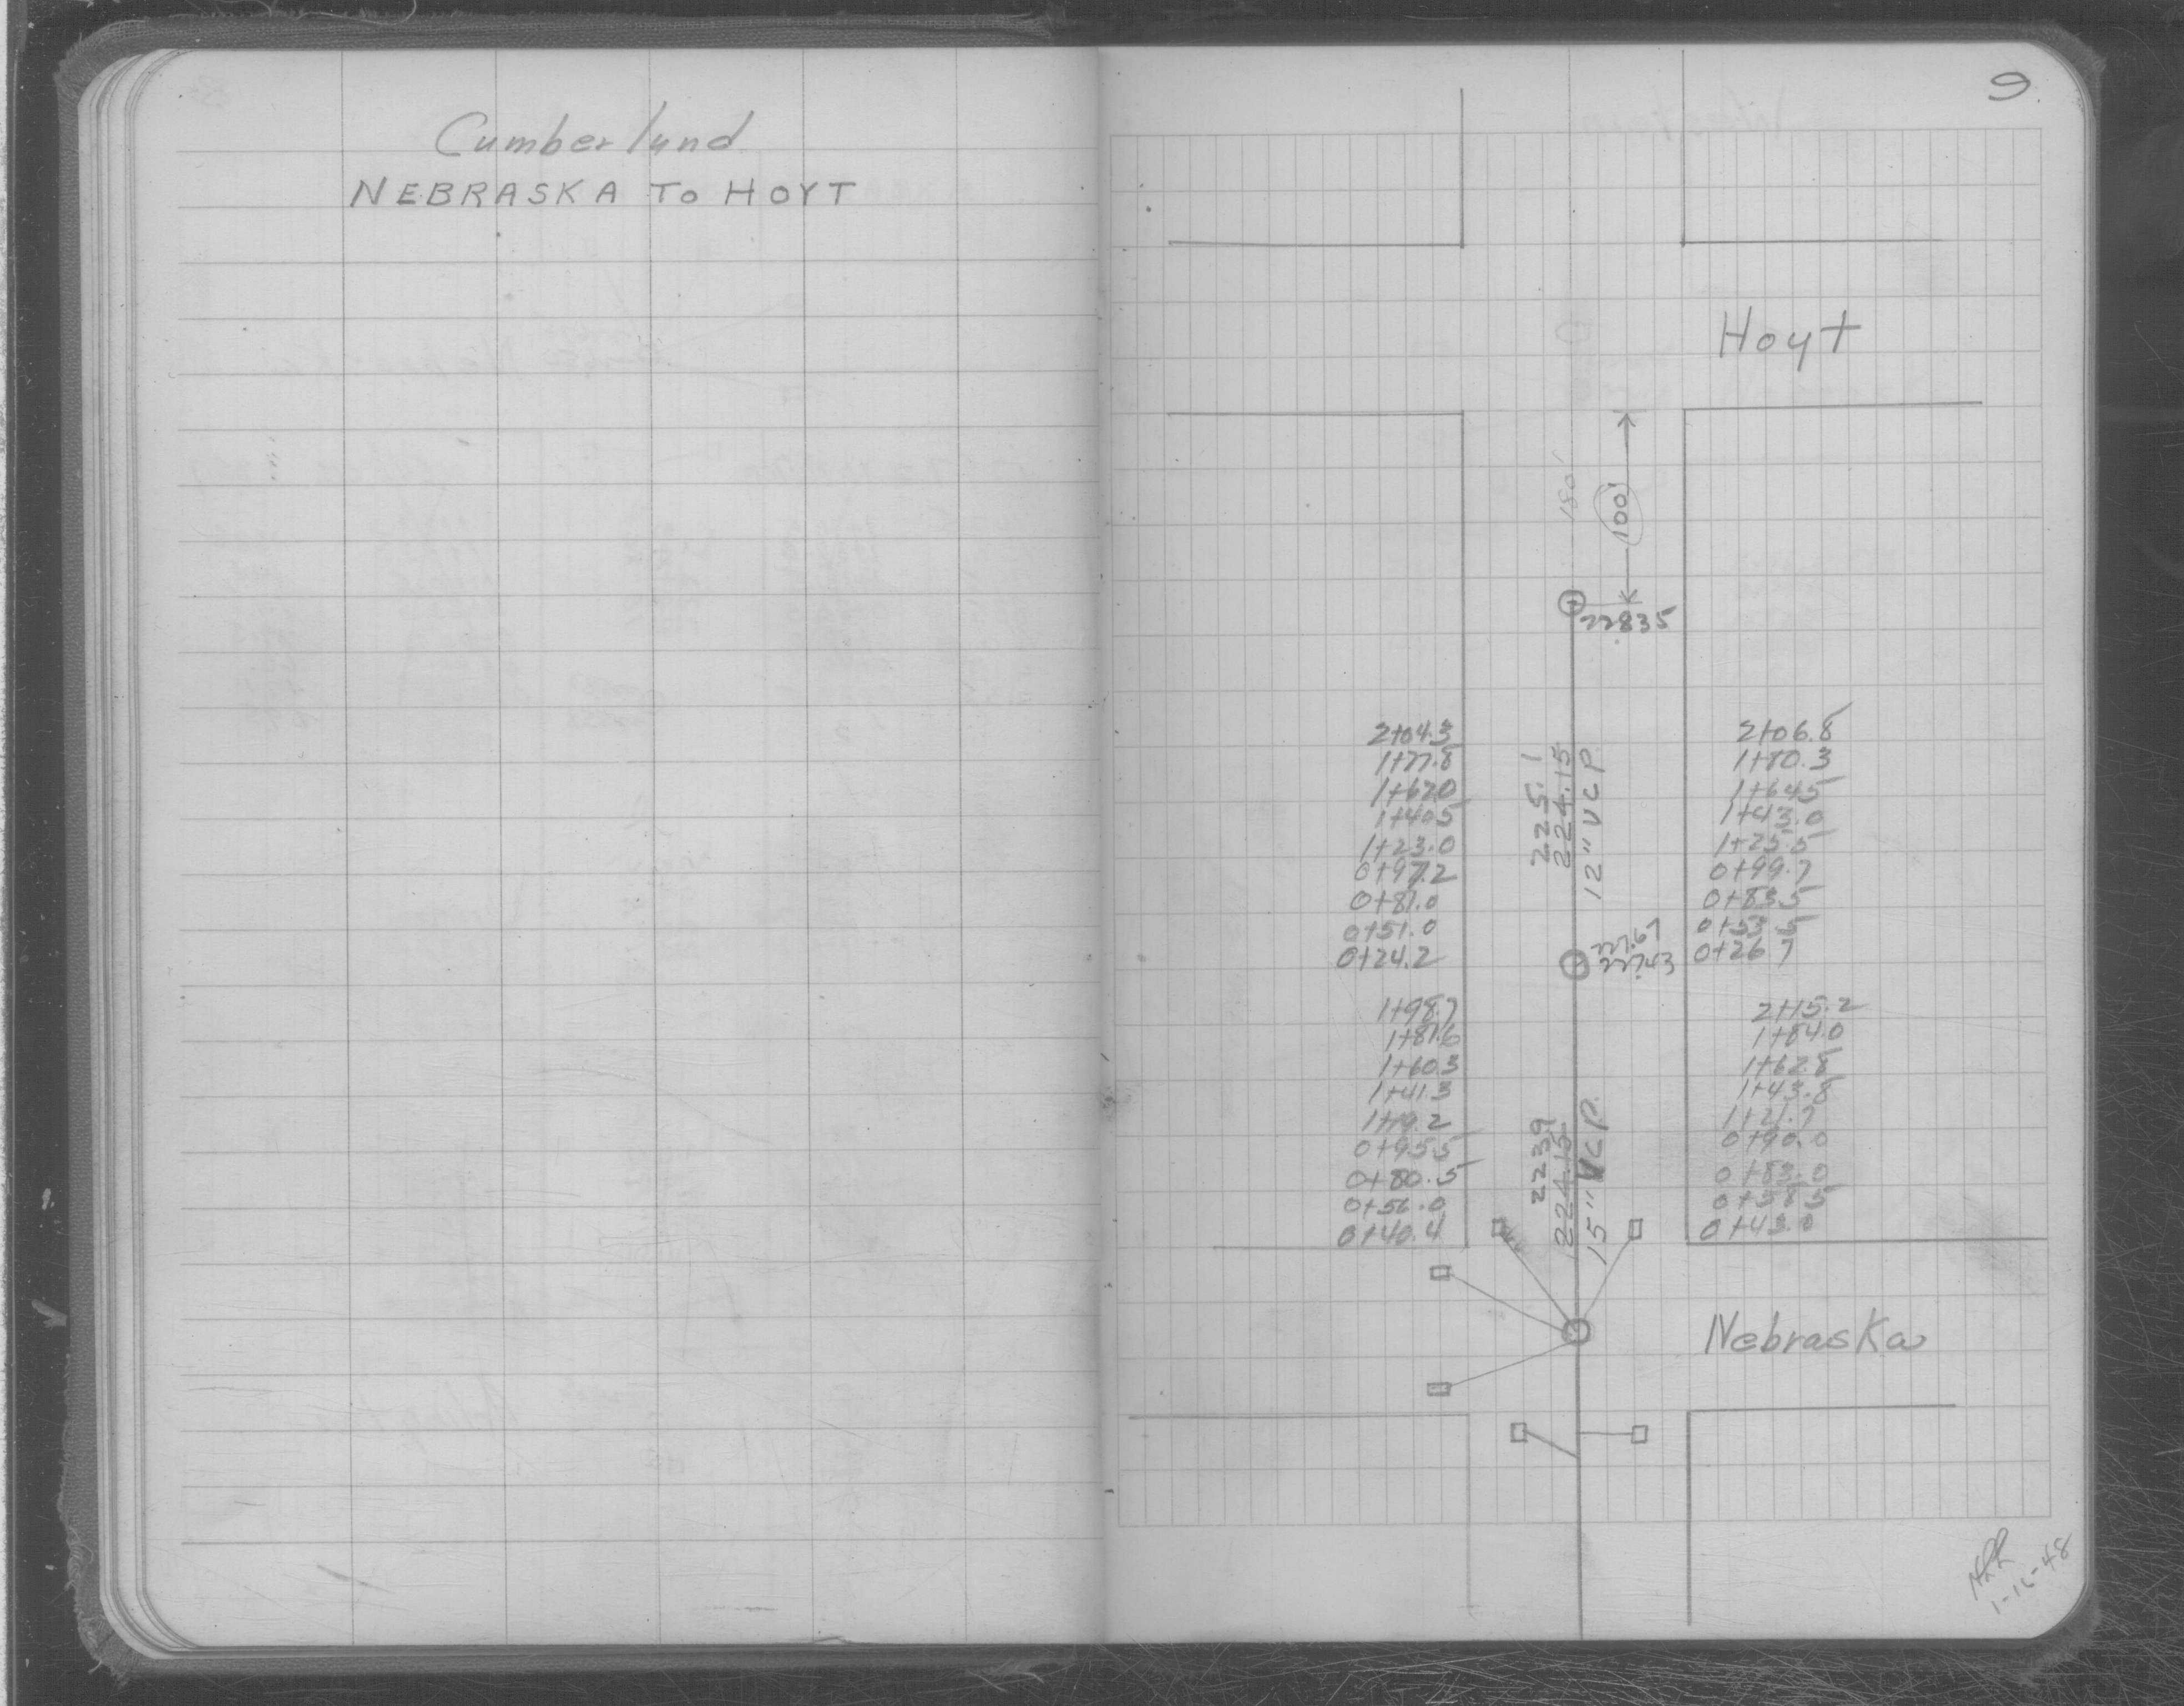 Cumberland
NEBRASKA TO HOYT
9
Hoyt
180'
100'
228.35
2+04.3
1+77.8
1+62.0
1+40.5
1+23.0
0+97.2
0+81.0
0+51.0
0+24.2
225.1
224.15
12" VCP
2+06.8
1+80.3
1+64.5
1+43.0
1+25.5
0+99.7
0+83.5
0+53.5
0+26.7
227.67
227.43
1+98.7
1+81.6
1+60.3
1+41.3
1+19.2
0+95.5
0+80.5
0+56.0
0+40.4
223.9
224.15
15" VCP.
2+15.2
1+84.0
1+62.8
1+43.8
1+21.7
0+90.0
0+83.0
0+58.5
0+43.0
Nebraska
1-16-48